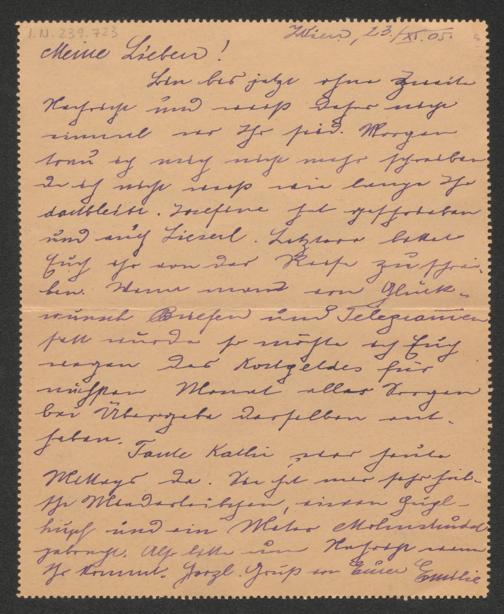 I.N. 239.723
Wien, 23./XI. 05.
Meine Lieben!
Bin bis jetzt ohne zweite
Nachricht und weiß daher nicht
einmal wo Ihr seid. Morgen
trau ich mich nicht mehr schreiben
da ich nicht weiß wie lange Ihr
dortbleibt. Josefine hat geschrieben
und auch Lieserl. Letztere bittet
Euch ihr von der Reise zu schrei-
ben. Wenn man von Glück-
wunsch Briefen und Telegramen
fett würde so möchte ich Euch
wegen des Kostgeldes für
nächsten Monat aller Sorgen
bei Übergabe derselben ent-
heben.
Tante Kathi war heute
Mittags da. Sie hat mir sehr hüb-
sche einen Gugl-
hupf und ein Meter
gebracht. Also bitte um Nachricht wann
Ihr kommt. Herzl. Gruß von Eurer Emilie